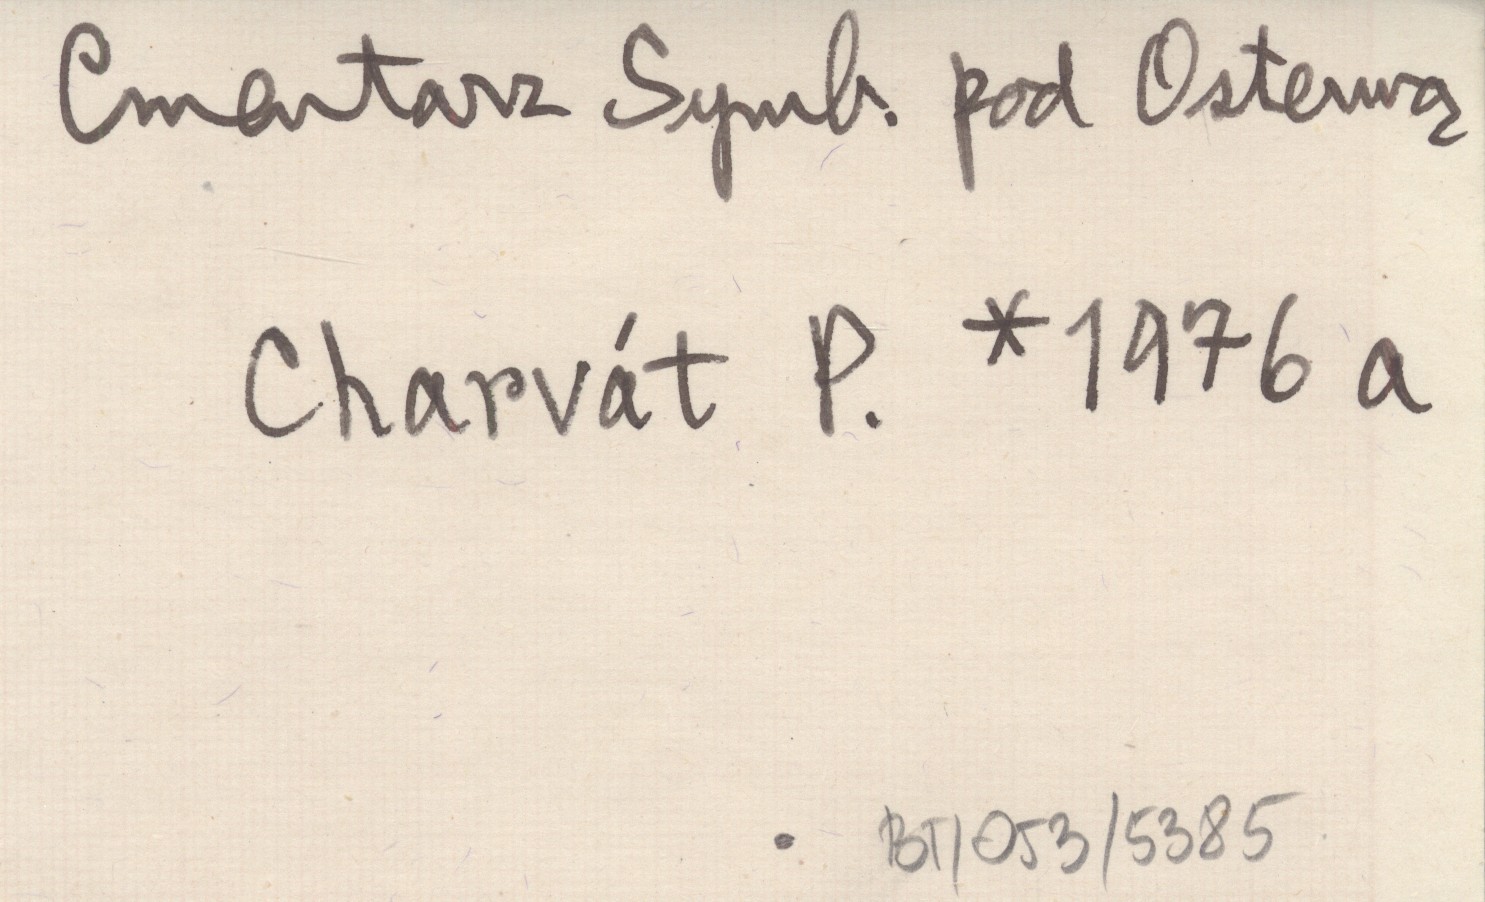 Cmentarz Symb. pod Osterwą
Charvát P. *1976 a
BT/053/5385